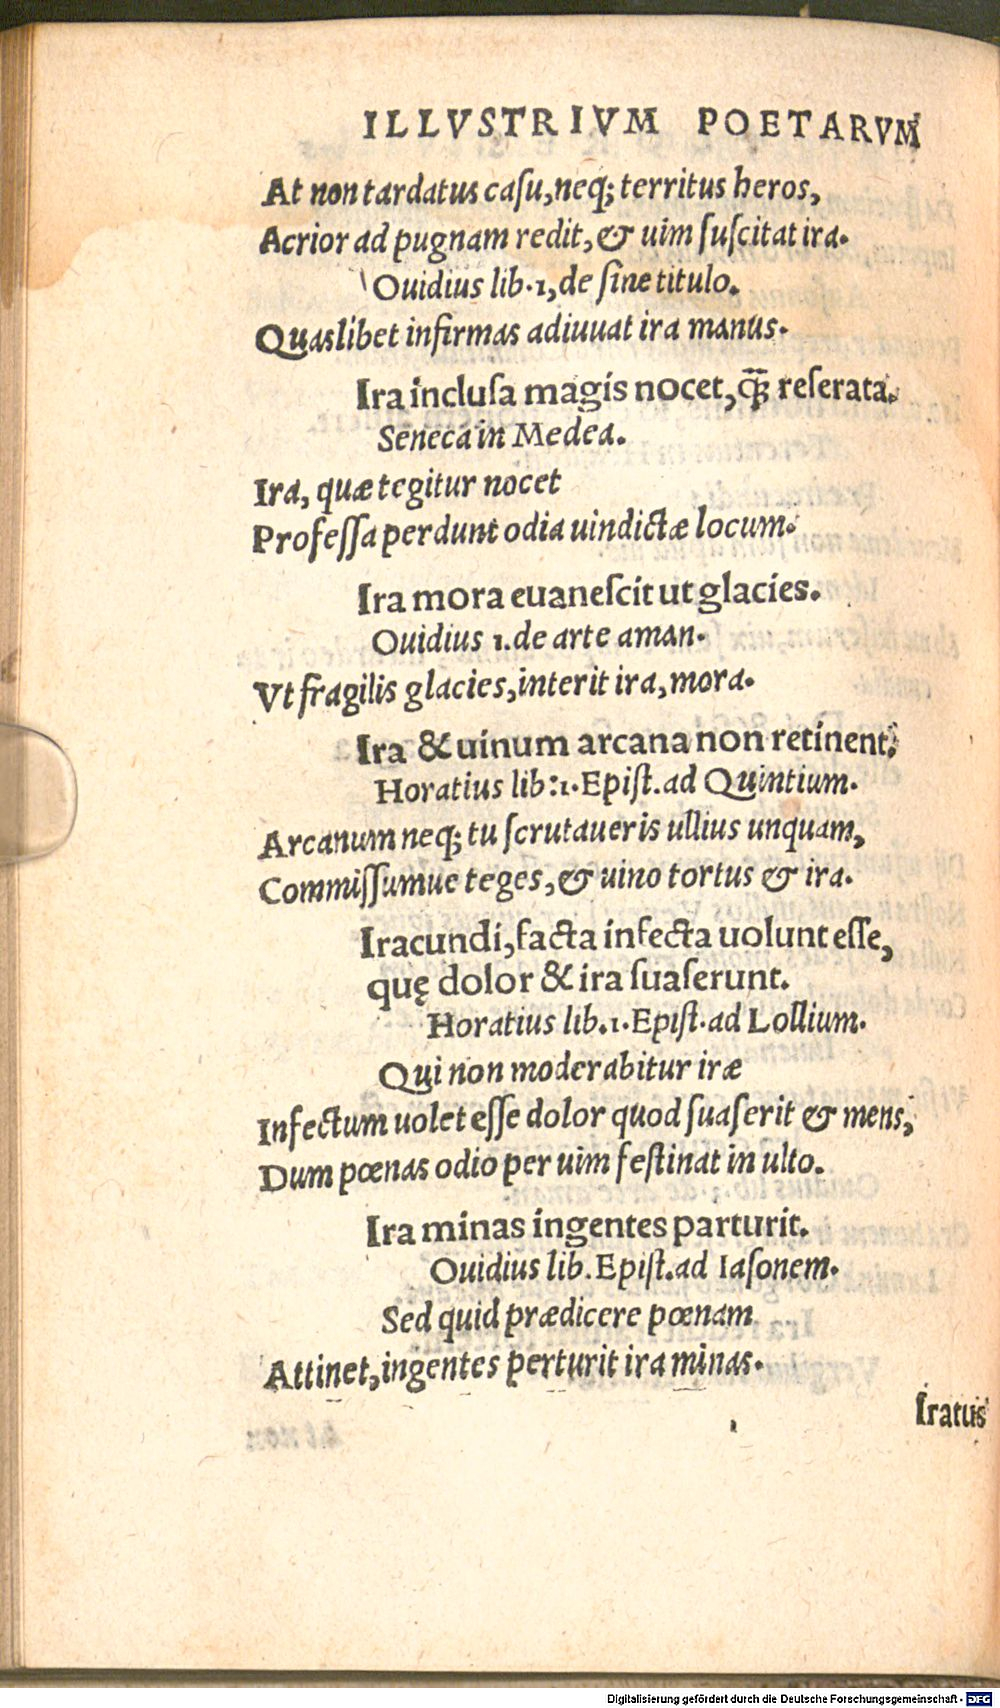 ILLVSTRIVM POETARVM
At non tardatus caſu, neq; territus heros,
Acrior ad pugnam redit, & uim ſuſcitat ira.
Ouidius lib. 1, de ſine titulo.
Quaslibet infirmas adiuuat ira manus.
Ira incluſa magis nocet, q̃ꝫ reſerata.
Seneca in Medea.
Ira, quæ tegitur nocet
Profeſſa perdunt odia uindictæ locum.
Ira mora euaneſcit ut glacies.
Ouidius 1. de arte aman.
Vt fragilis glacies, interit ira, mora.
Ira & uinum arcana non retinent,
Horatius lib: 1. Epiſt. ad Quintium.
Arcanum neq; tu ſcrutaueris ullius unquam,
Commiſſumue teges, & uino tortus & ira.
Iracundi, facta infecta uolunt eſſe,
quę dolor & ira ſuaſerunt.
Horatius lib. 1. Epiſt. ad Lollium.
Qui non moderabitur iræ
Infectum uolet eſſe dolor quod ſuaſerit & mens,
Dum pœnas odio per uim feſtinat in ulto.
Ira minas ingentes parturit.
Ouidius lib. Epiſt. ad Iaſonem.
Sed quid prædicere pœnam
Attinet, ingentes perturit ira minas.
Iratus
Digitalisierung gefördert durch die Deutsche Forschungsgemeinschaft - DFG